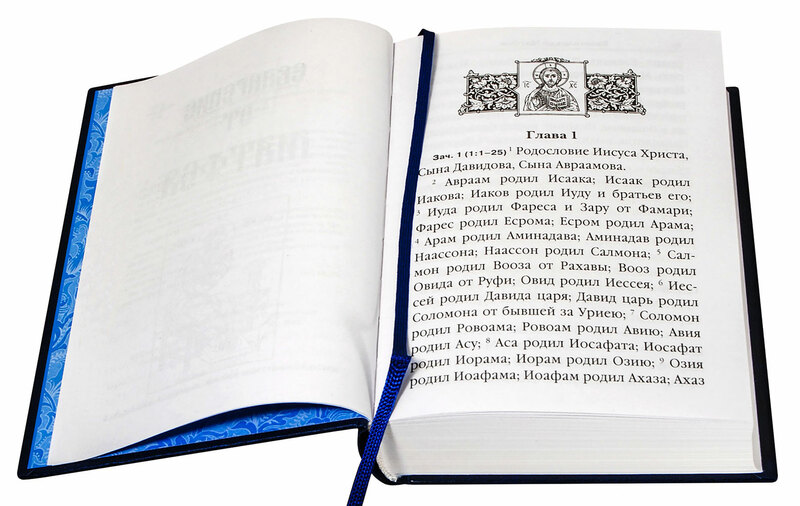 IC XC
Глава 1
Зач. 1 (1:1–25) 1 Родословие Иисуса Христа,
Сына Давидова, Сына Авраамова.
2 Авраам родил Исаака; Исаак родил
Иакова; Иаков родил Иуду и братьев его;
3 Иуда родил Фареса и Зару от Фамари;
Фарес родил Есрома; Есром родил Арама;
4 Арам родил Аминадава; Аминадав родил
Наассона; Наассон родил Салмона; 5 Сал-
мон родил Вооза от Рахавы; Вооз родил
Овида от Руфи; Овид родил Иессея; 6 Иес-
сей родил Давида царя; Давид царь родил
Соломона от бывшей за Уриею; 7 Соломон
родил Ровоама; Ровоам родил Авию; Авия
родил Асу; 8 Аса родил Иосафата; Иосафат
родил Иорама; Иорам родил Озию; 9 Озия
родил Иоафама; Иоафам родил Ахаза; Ахаз